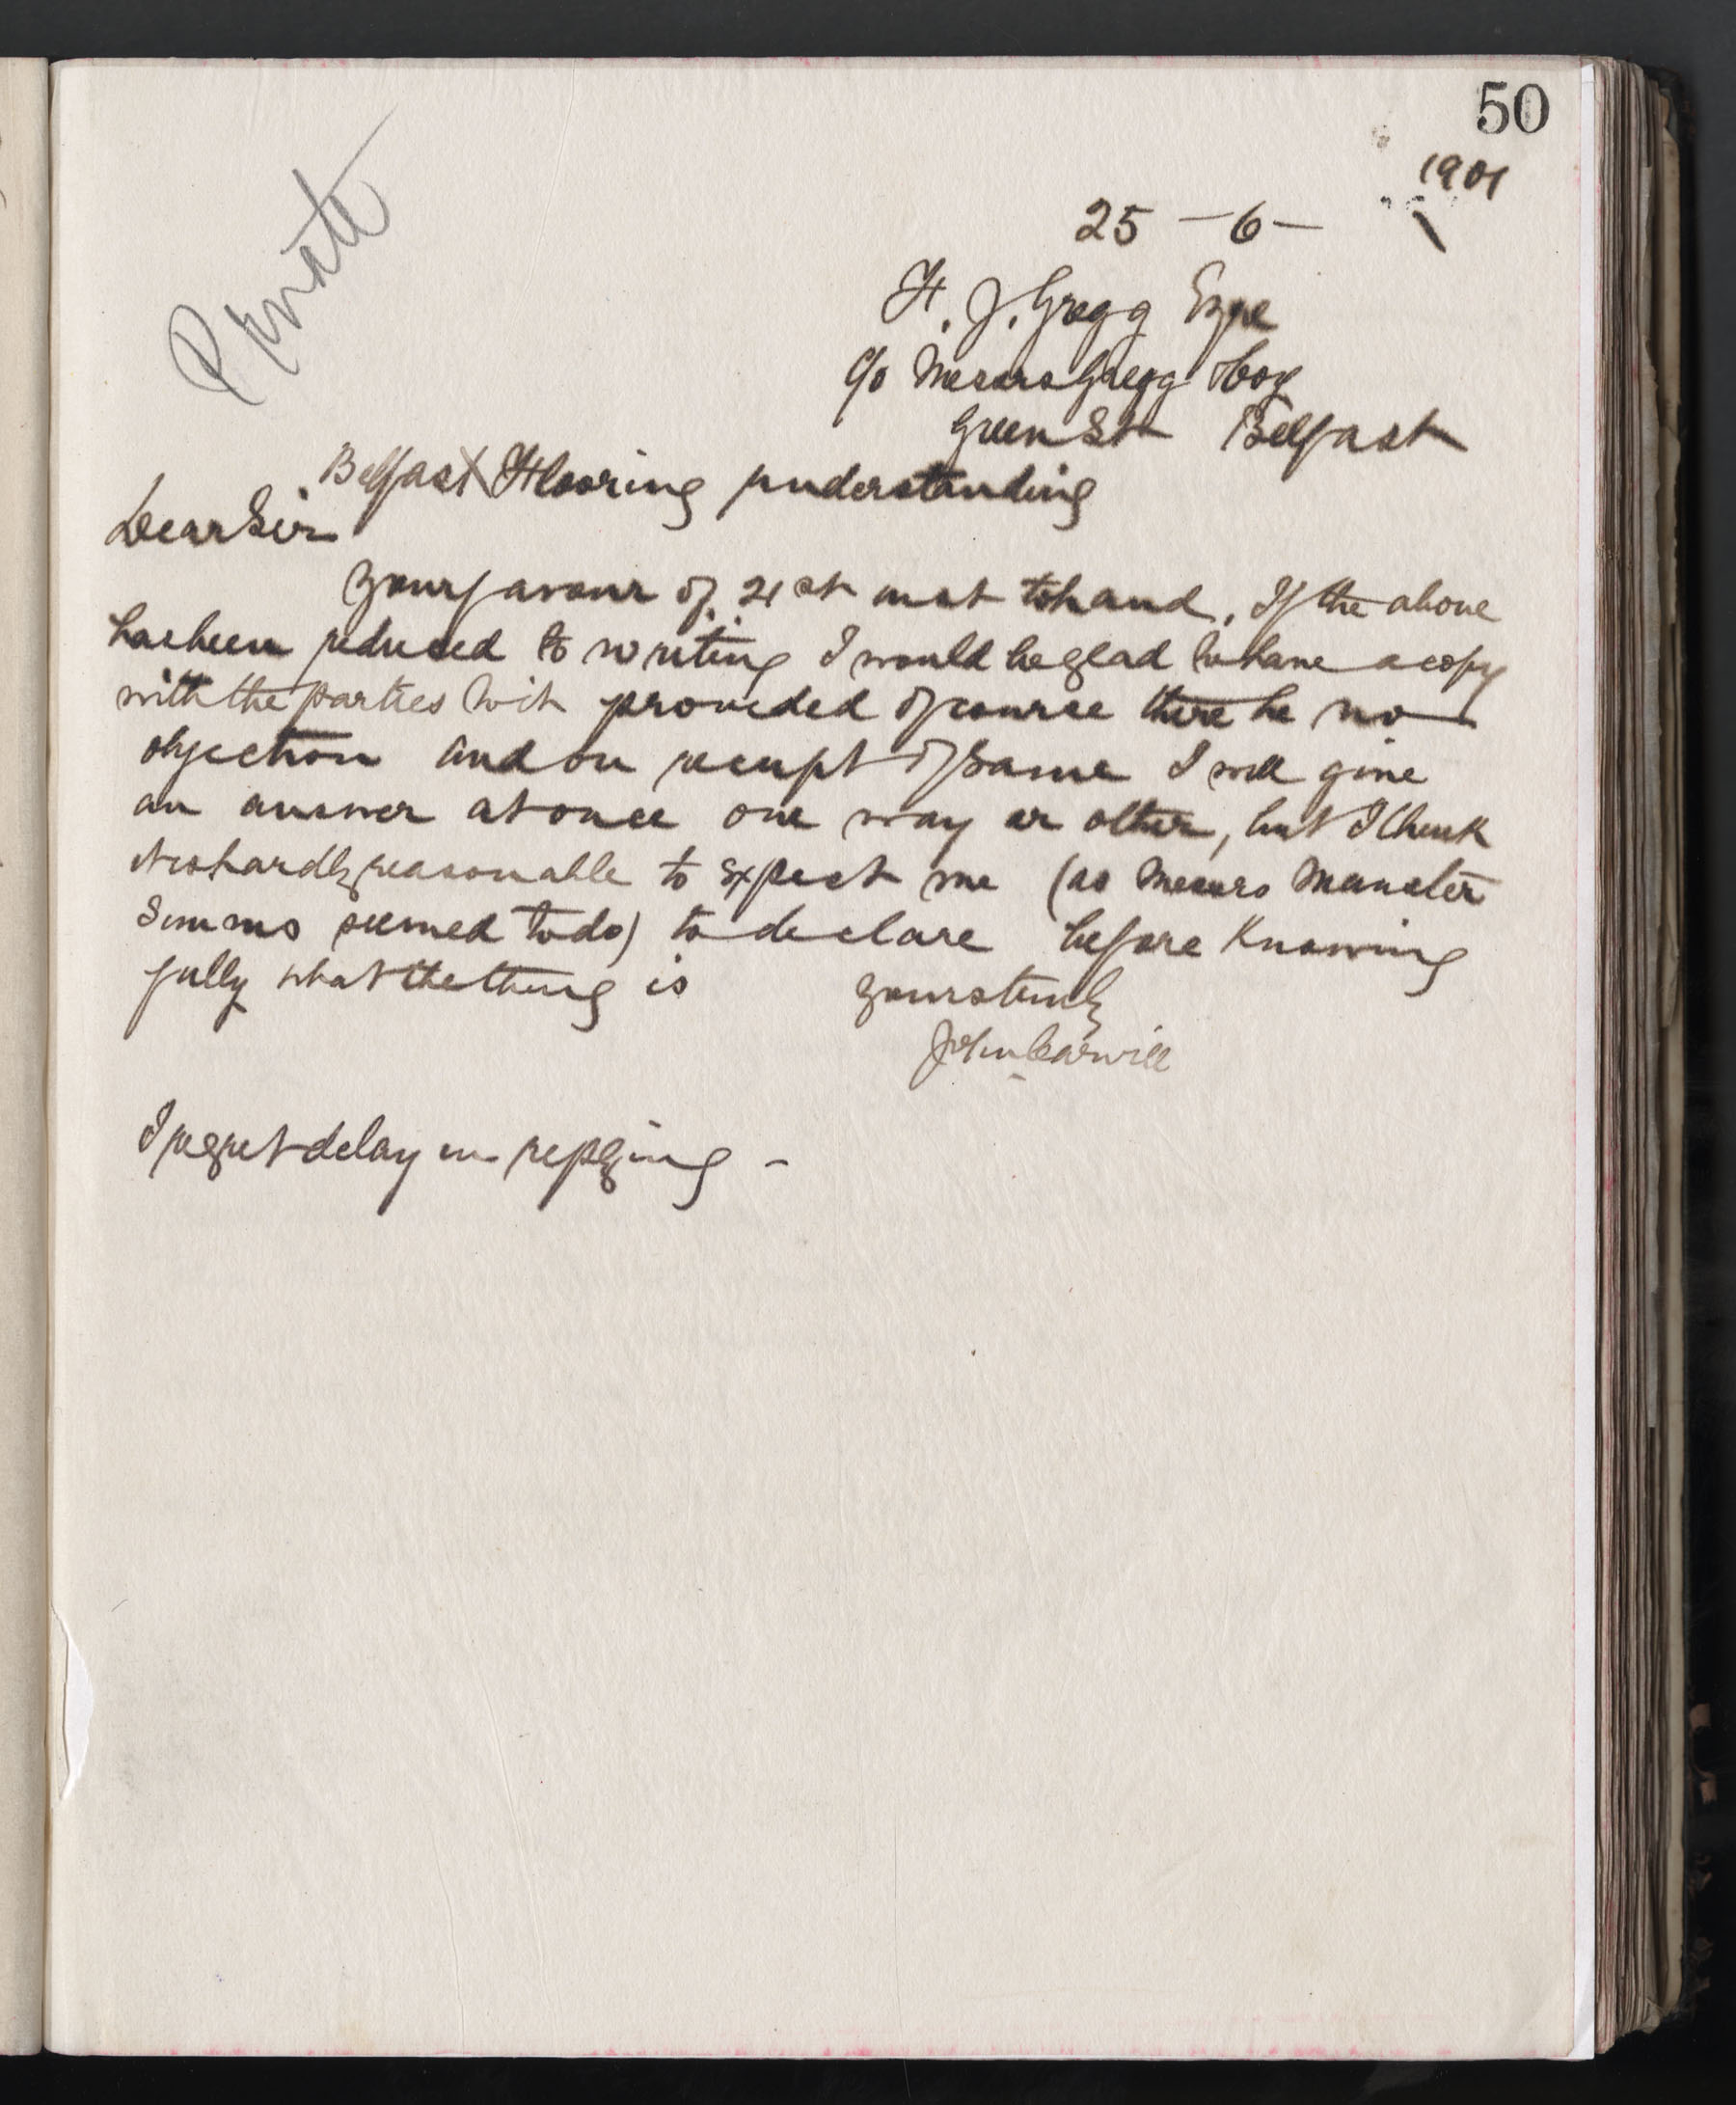 50
Private
1901
25 - 6 -
H. J. Gregg Esqre
c/o Messrs Gregg & Coy
Green St Belfast
Belfast Flooring understanding
Dear Sir
Your favour of 21st inst to hand. If the above
has been reduced to writing I would be glad to have a copy
with the parties to it provided of course there be no
objection and on receipt of same I will give
an answer at once one way or other, but I think
it is hardly reasonable to expect me (as Messrs Munster
Simms seemed to do) to declare before knowing
fully what the thing is
Yours truly
John Carvill
I regret delay in replying -